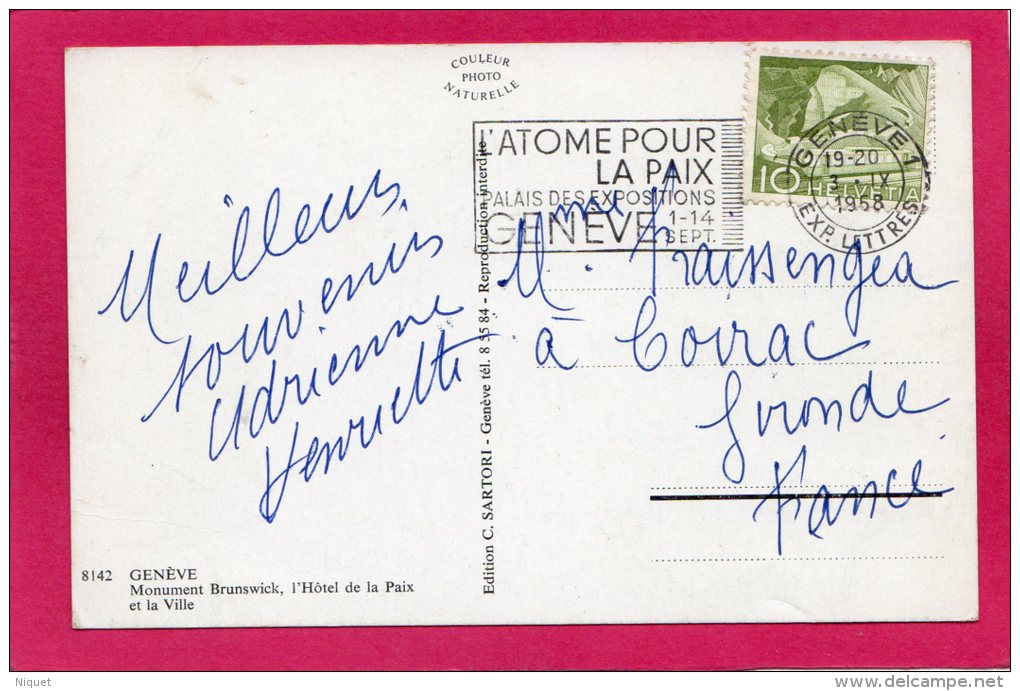 COULEUR
PHOTO
NATURELLE
L'ATOME POUR
LA PAIX
PALAIS DES EXPOSITIONS
GENÈVE 1-14
SEPT.
10 HELVETIA
GENÈVE 1
19-20
3.IX
1958
EXP. LETTRES
Meilleurs
souvenirs
Adrienne
Henriette
M. Mme Fraissengea
à Coirac
Gironde
France
Edition C. SARTORI - Genève tél. 8 55 84 - Reproduction interdite
8142 GENÈVE
Monument Brunswick, l'Hôtel de la Paix
et la Ville
Niquet
www.delcampe.net